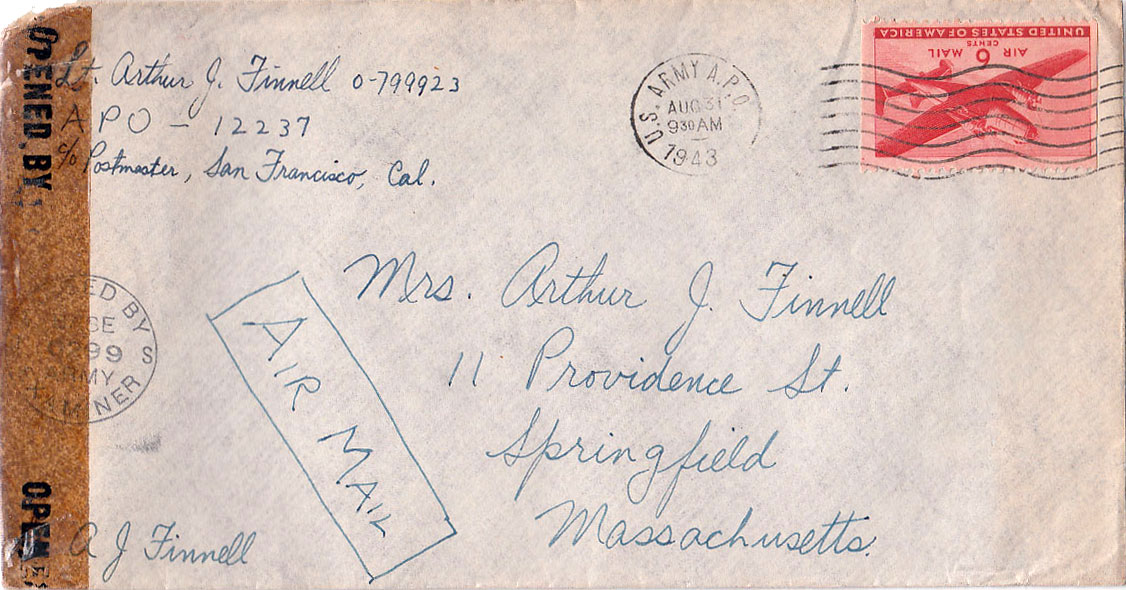 OPENED BY
Lt. Arthur J. Finnell O-799923
APO - 12237
c/o Postmaster, San Francisco, Cal.
U.S. ARMY A.P.O.
AUG 31
9 30 AM
1943
UNITED STATES OF AMERICA
AIR 6 MAIL
CENTS
Mrs. Arthur J. Finnell
11 Providence St.
Springfield
Massachusetts.
AIR MAIL
ED BY
99 S
ARMY
MINER
OPEN
A J Finnell